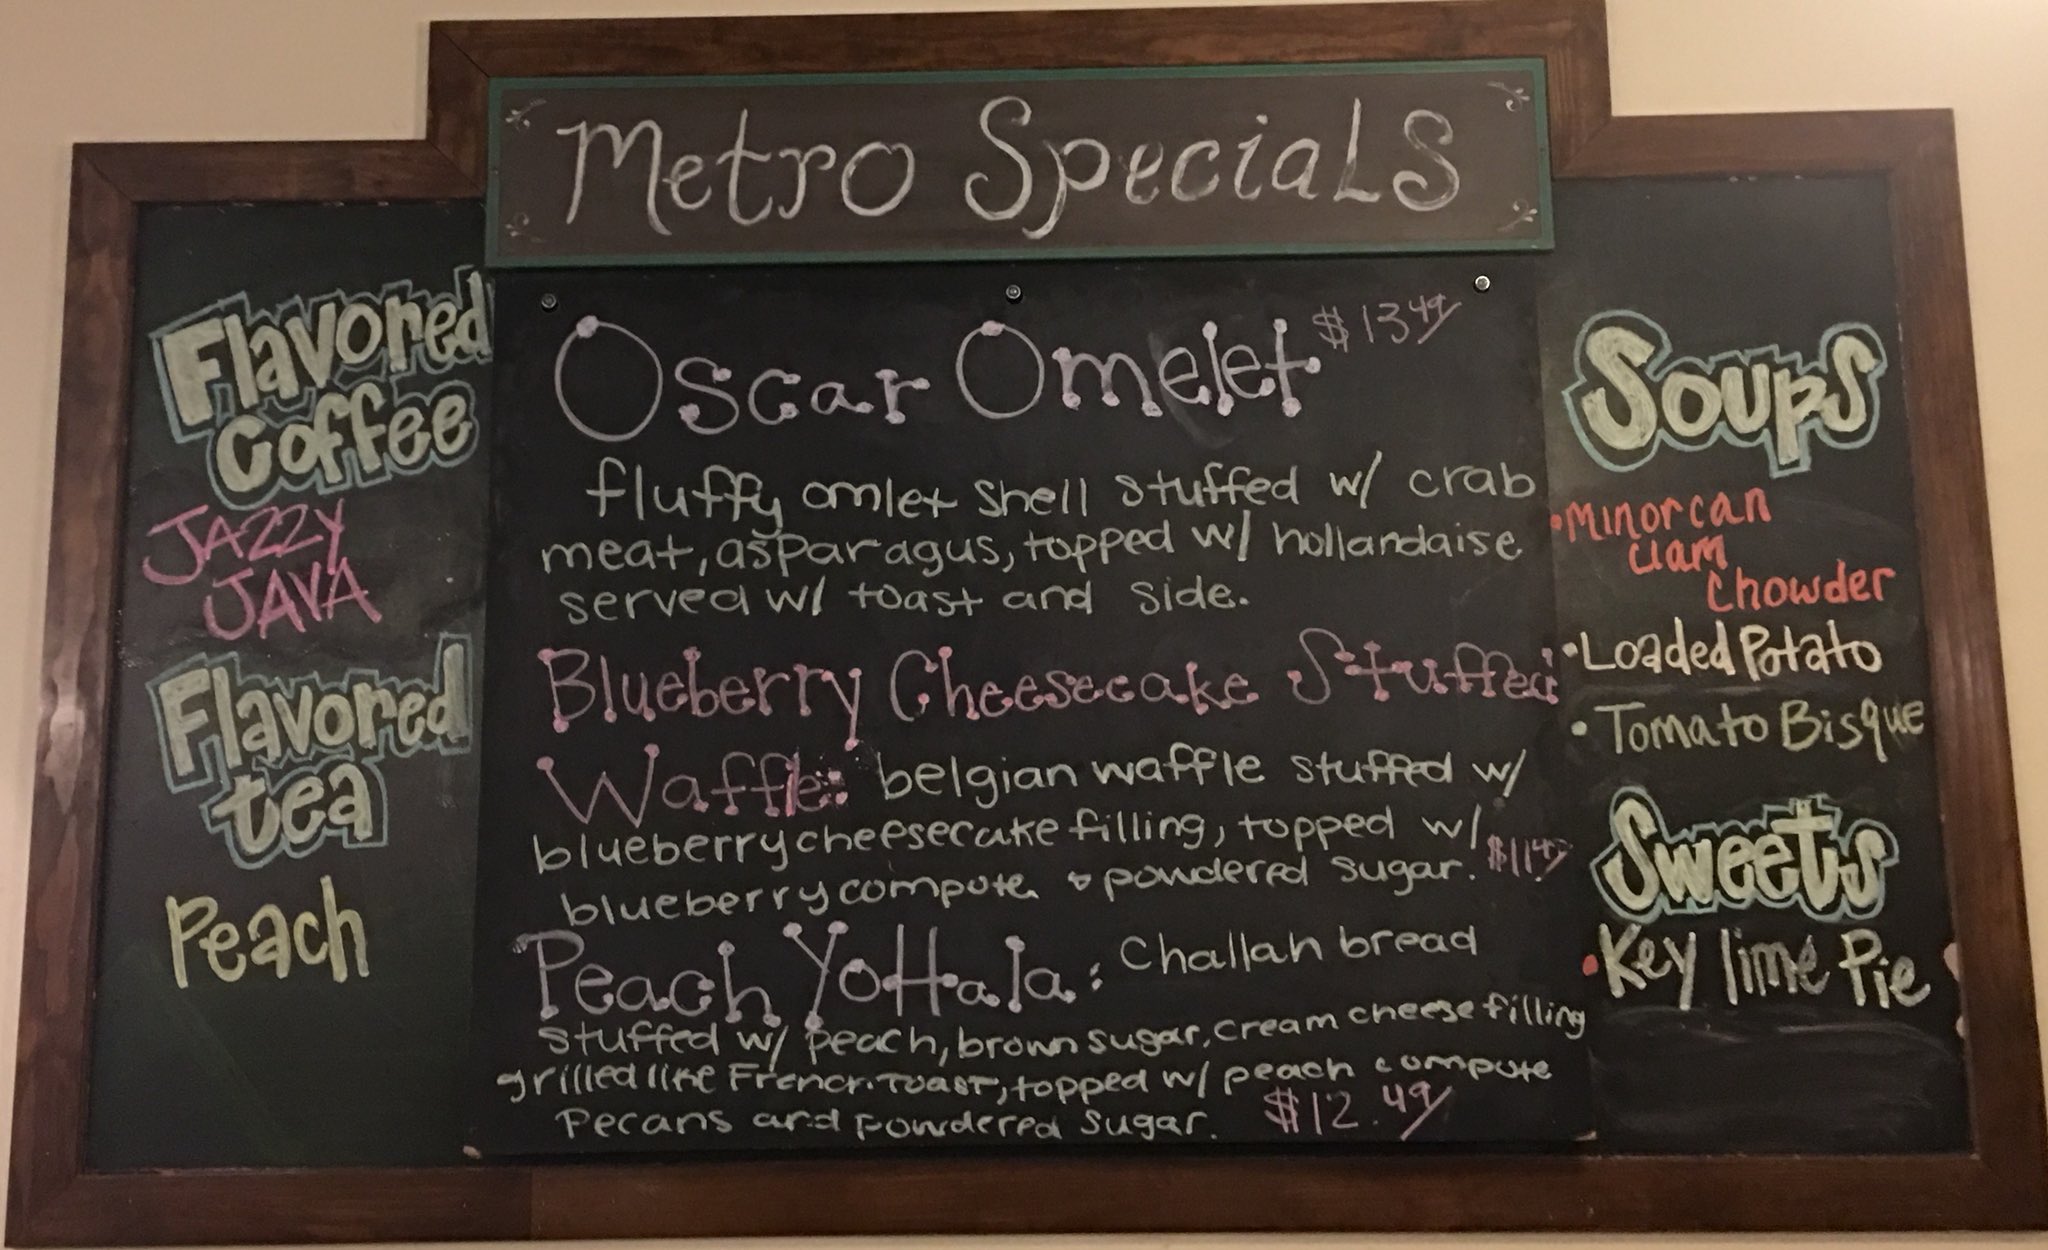 Metro Specials
Flavored
Coffee
JAZZY
JAVA
Flavored
tea
Peach
Oscar Omelet $13.49
fluffy omlet shell stuffed w/ crab
meat, asparagus, topped w/ hollandaise
served w/ toast and side.
Blueberry Cheesecake Stuffed
Waffle: belgian waffle stuffed w/
blueberry cheesecake filling, topped w/
blueberry compote & powdered sugar. $11.49
Peach YoHala: Challah bread
stuffed w/ peach, brown sugar, cream cheese filling
grilled like French toast, topped w/ peach compote
Pecans and powdered sugar. $12.49
Soups
• Minorcan
Clam
Chowder
• Loaded Potato
• Tomato Bisque
Sweets
• Key lime Pie